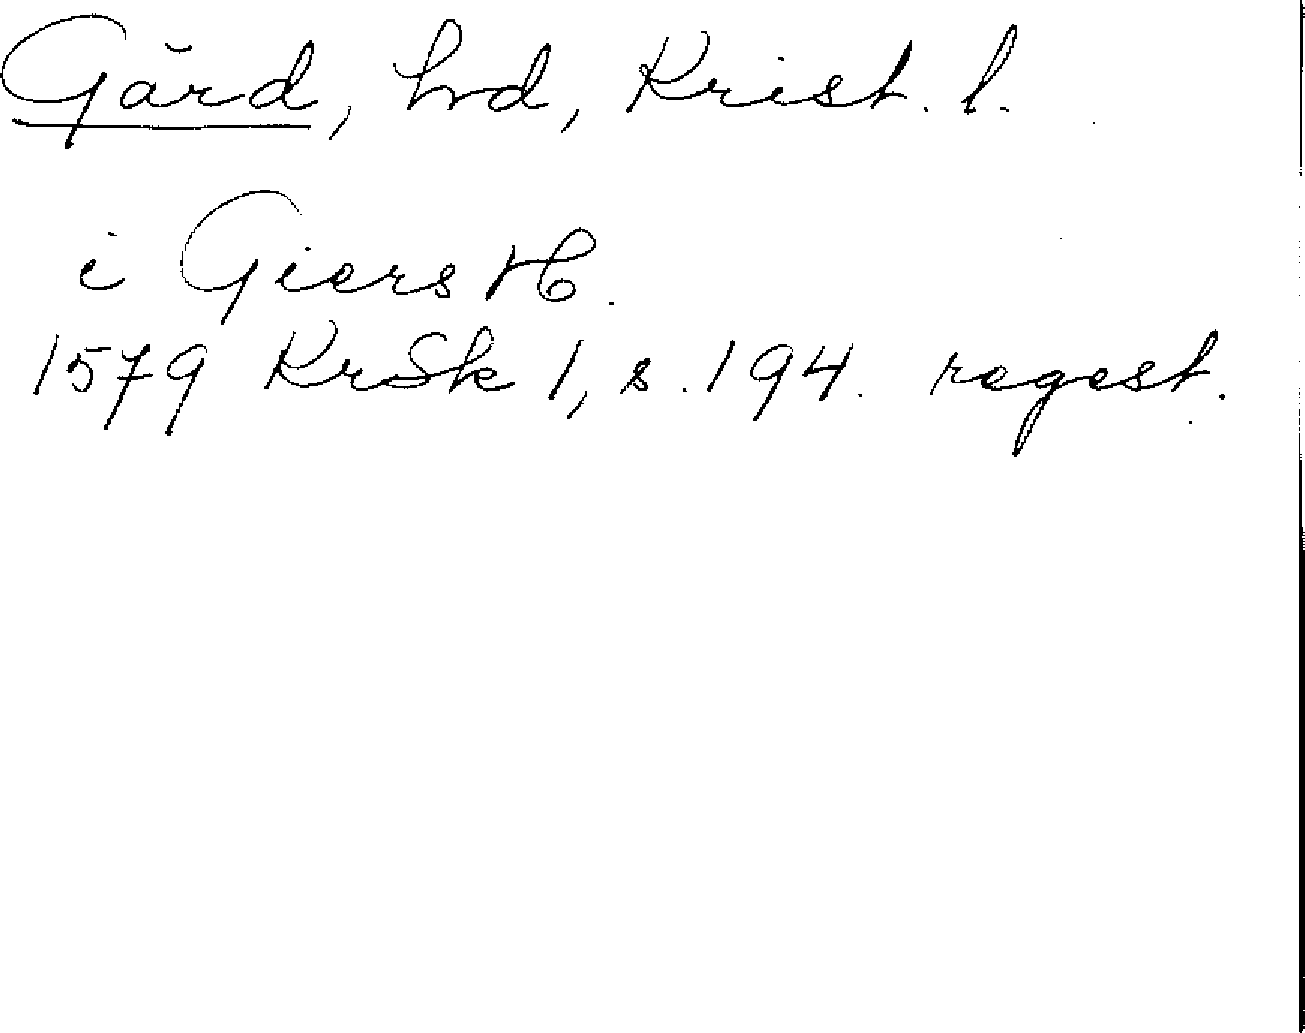 Gärd, hrd, Krist. l.
i Giers H.
1579 KrSk 1, s. 194. regest.